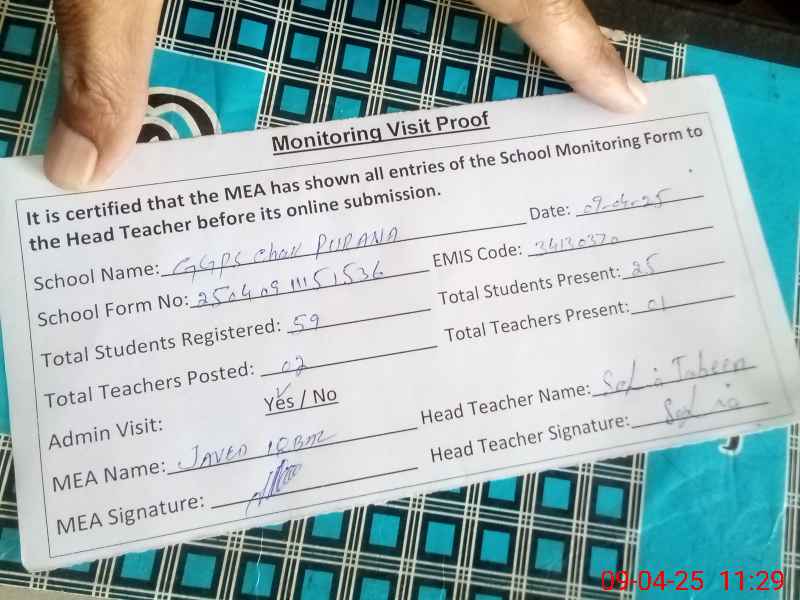 Monitoring Visit Proof
It is certified that the MEA has shown all entries of the School Monitoring Form to
the Head Teacher before its online submission.
School Name: GGPS Chak PURANA Date: 09-04-25
School Form No: 25040911151536 EMIS Code: 34130370
Total Students Registered: 59 Total Students Present: 25
Total Teachers Posted: 02 Total Teachers Present: 01
Admin Visit: Yes / No
MEA Name: JAVED IQBAL Head Teacher Name:
MEA Signature: Head Teacher Signature:
09-04-25 11:29